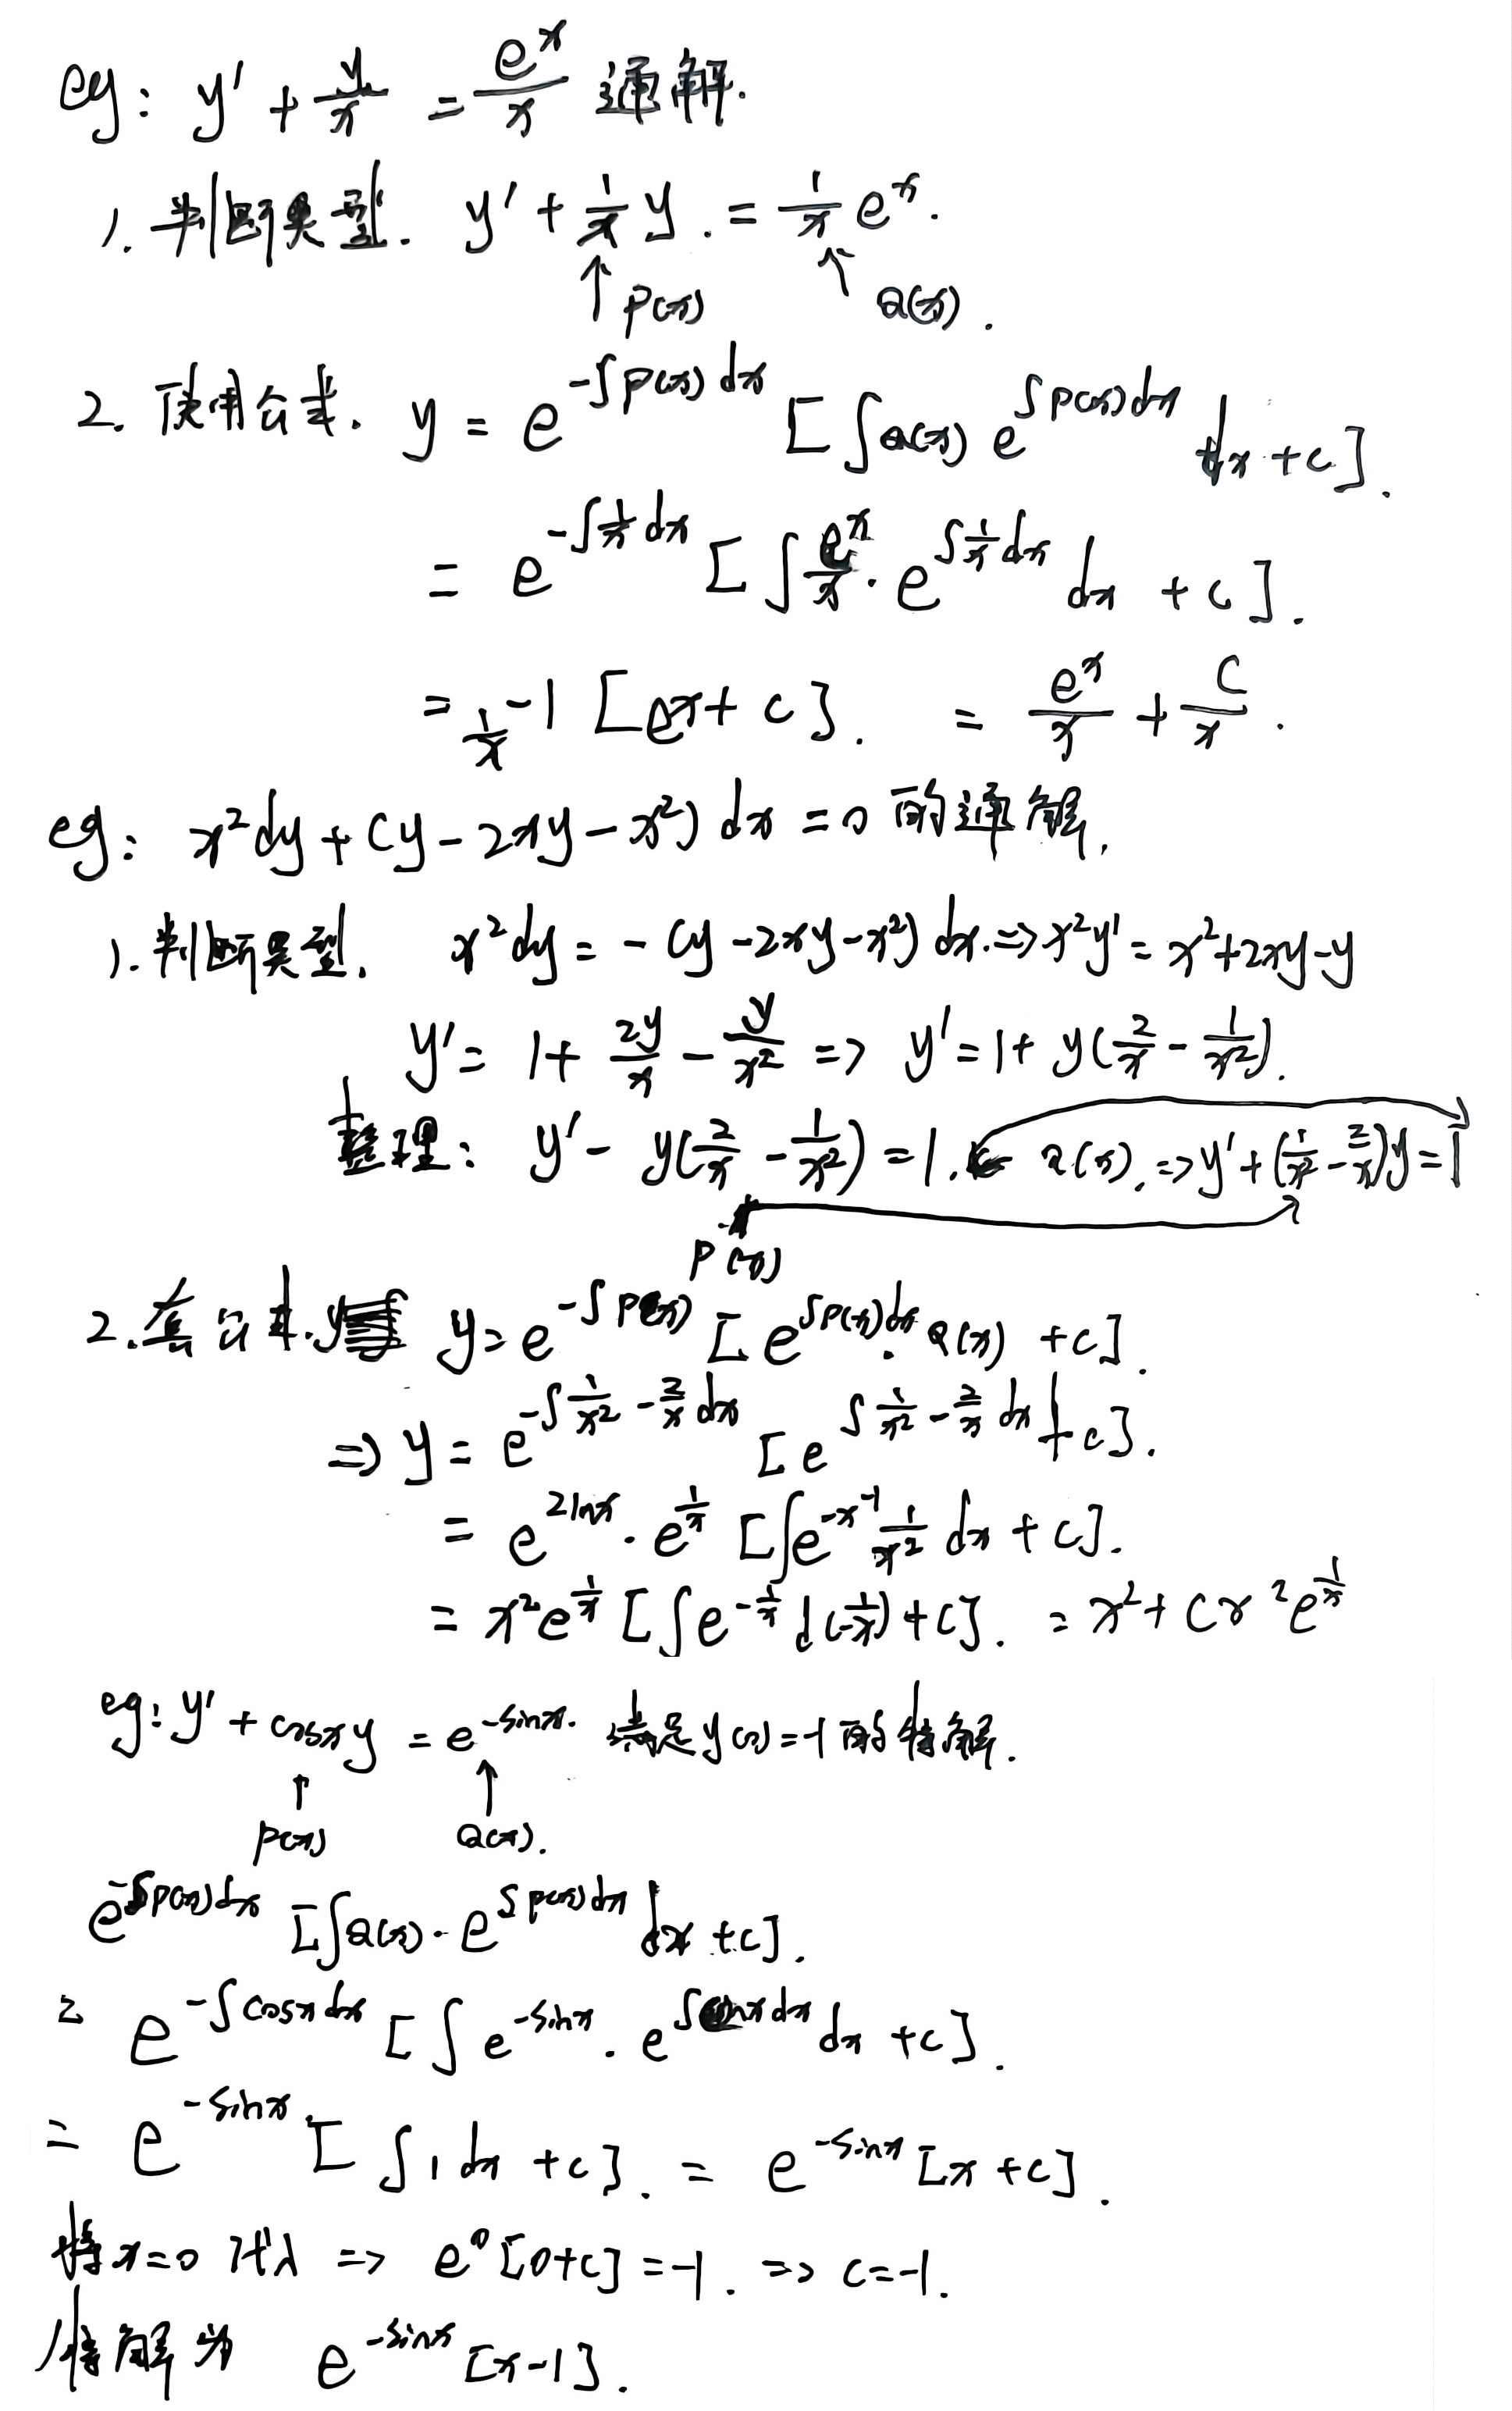 eg: y' + y/x = e^x/x 通解.
1. 判断类型. y' + 1/x y. = 1/x e^x.
↑ P(x) ↑ Q(x).
2. 使用公式. y = e^{-∫P(x)dx} [∫Q(x) e^{∫P(x)dx} dx + c].
= e^{-∫1/x dx} [∫e^x/x · e^{∫1/x dx} dx + c].
= 1/x -1 [ex + c]. = e^x/x + C/x.
eg: x²dy + (y - 2xy - x²) dx = 0 的通解.
1. 判断类型. x²dy = - (y - 2xy - x²) dx. => x²y' = x² + 2xy - y
y' = 1 + 2y/x - y/x² => y' = 1 + y(2/x - 1/x²).
整理: y' - y(2/x - 1/x²) = 1. ← Q(x). => y' + (1/x² - 2/x)y = 1
P(x)
2. 套公式. y = e^{-∫P(x)} [e^{∫P(x)dx} · Q(x) + c].
=> y = e^{-∫1/x² - 2/x dx} [e^{∫1/x² - 2/x dx} + c].
= e^{2lnx} · e^{1/x} [∫e^{-x^{-1}} 1/x² dx + c].
= x²e^{1/x} [∫e^{-1/x} d(-1/x) + c]. = x² + Cx²e^{1/x}
eg: y' + cosx y = e^{-sinx}. 满足y(0) = -1 的特解.
↑ P(x) ↑ Q(x).
e^{-∫P(x)dx} [∫Q(x) · e^{∫P(x)dx} dx + c].
2 e^{-∫cosx dx} [∫e^{-sinx} · e^{∫cosx dx} dx + c].
= e^{-sinx} [∫1 dx + c]. = e^{-sinx} [x + c].
将x=0 代入 => e^0 [0+c] = -1. => c = -1.
特解为 e^{-sinx} [x-1].